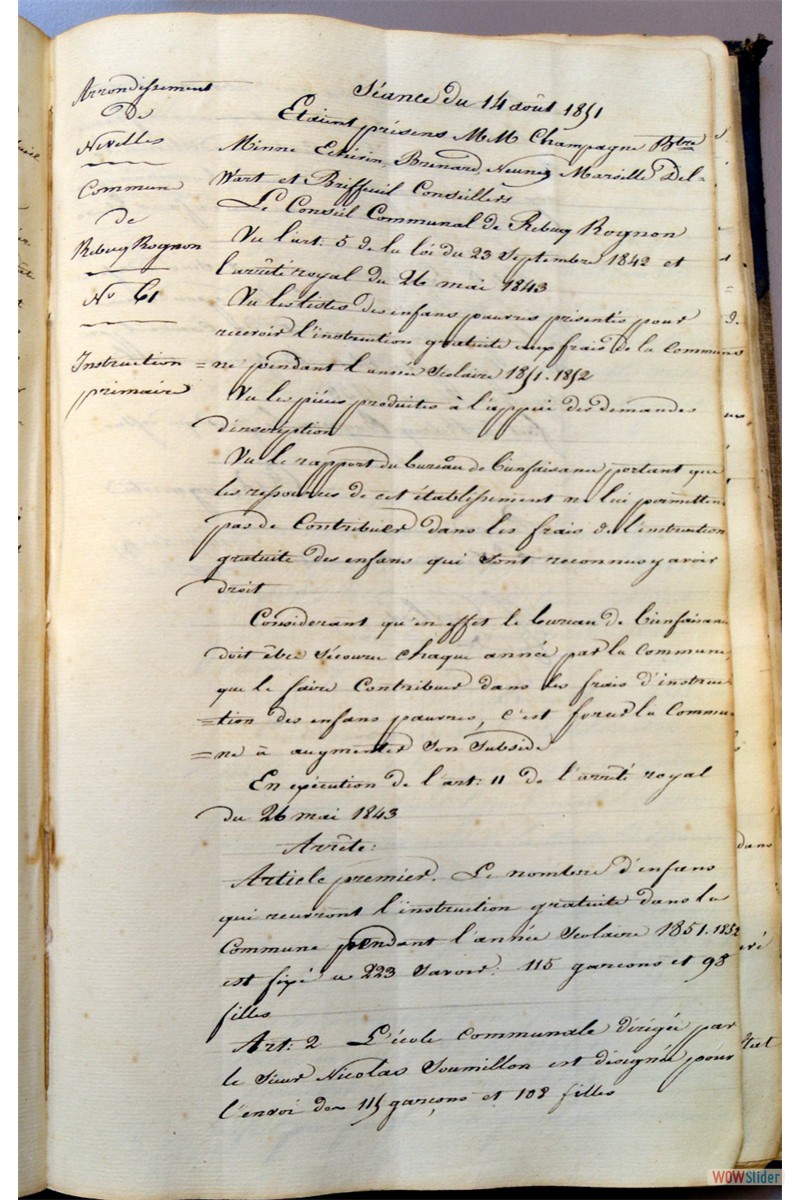 Arrondissement
de
Nivelles
Commune
de
Rebecq Rognon
No 61
Instruction
primaire
Séance du 14 août 1851
Etaient présens M.M Champagne Bgtre
Minne Echevin, Brenard, Neunez Marseille Del-
Wart et Briffeuil Conseillers
Le Conseil Communal de Rebecq Rognon
Vu l'art: 5 de la loi du 23 Septembre 1842 et
l'arrêté royal du 26 mai 1843
Vu les listes des enfans pauvres présentés pour
recevoir l'instruction gratuite aux frais de la Commu
= ne pendant l'année Scolaire 1851-1852
Vu les pièces produites à l'appui des demandes
d'inscription
Vu le rapport du bureau de bienfaisance portant que
les ressources de cet établissement ne lui permetten
pas de Contribuer dans les frais de l'instruction
gratuite des enfans qui Sont reconnus y avoir
droit
Considerant qu'en effet le bureau de bienfaisanc
doit être Secouru chaque année par la Commune,
que le faire Contribuer dans les frais d'instruc
=tion des enfans pauvres, c'est forcer la Commu
=ne à augmenter Son Subside
En exécution de l'art: 11 de l'arrêté royal
du 26 mai 1843
Arrête:
Article premier. Le nombre d'enfans
qui recevront l'instruction gratuite dans la
Commune pendant l'année Scolaire 1851-1852
est fixé a 223 Savoir: 115 garçons et 98
filles
Art: 2 L'école communale dirigée par
le Sieur Nicolas Soumillon est désignée pour
l'envoi de 115 garçons et 108 filles
dans
WOWSlider